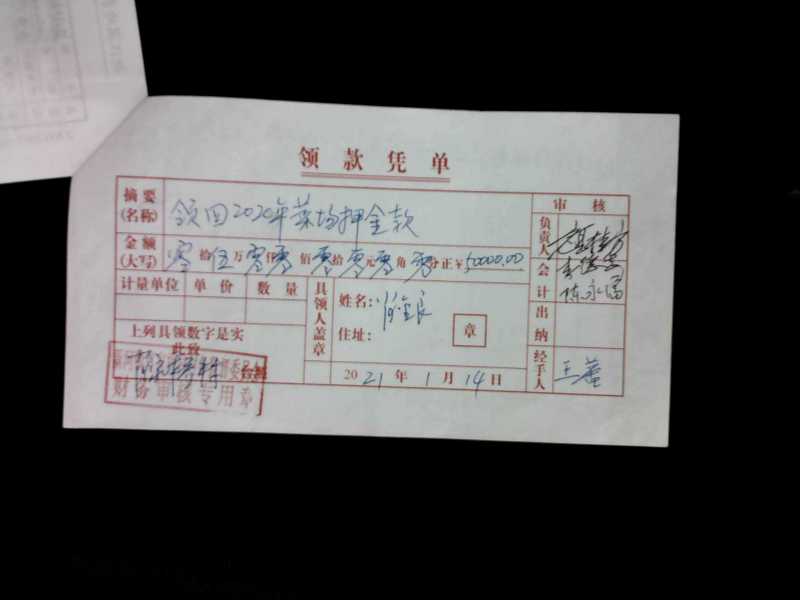 领款凭单
摘要(名称) 领回2020年菜场押金款
审核
金额(大写) 零拾伍万零仟零佰零拾零元零角零分正¥50000.00
负责人
会计 陈永
计量单位 单价 数量
具领人盖章
姓名:
住址:
章
出纳
上列具领数字是实
此致
台照
2021年1月14日
经手人 王
财务审核专用章